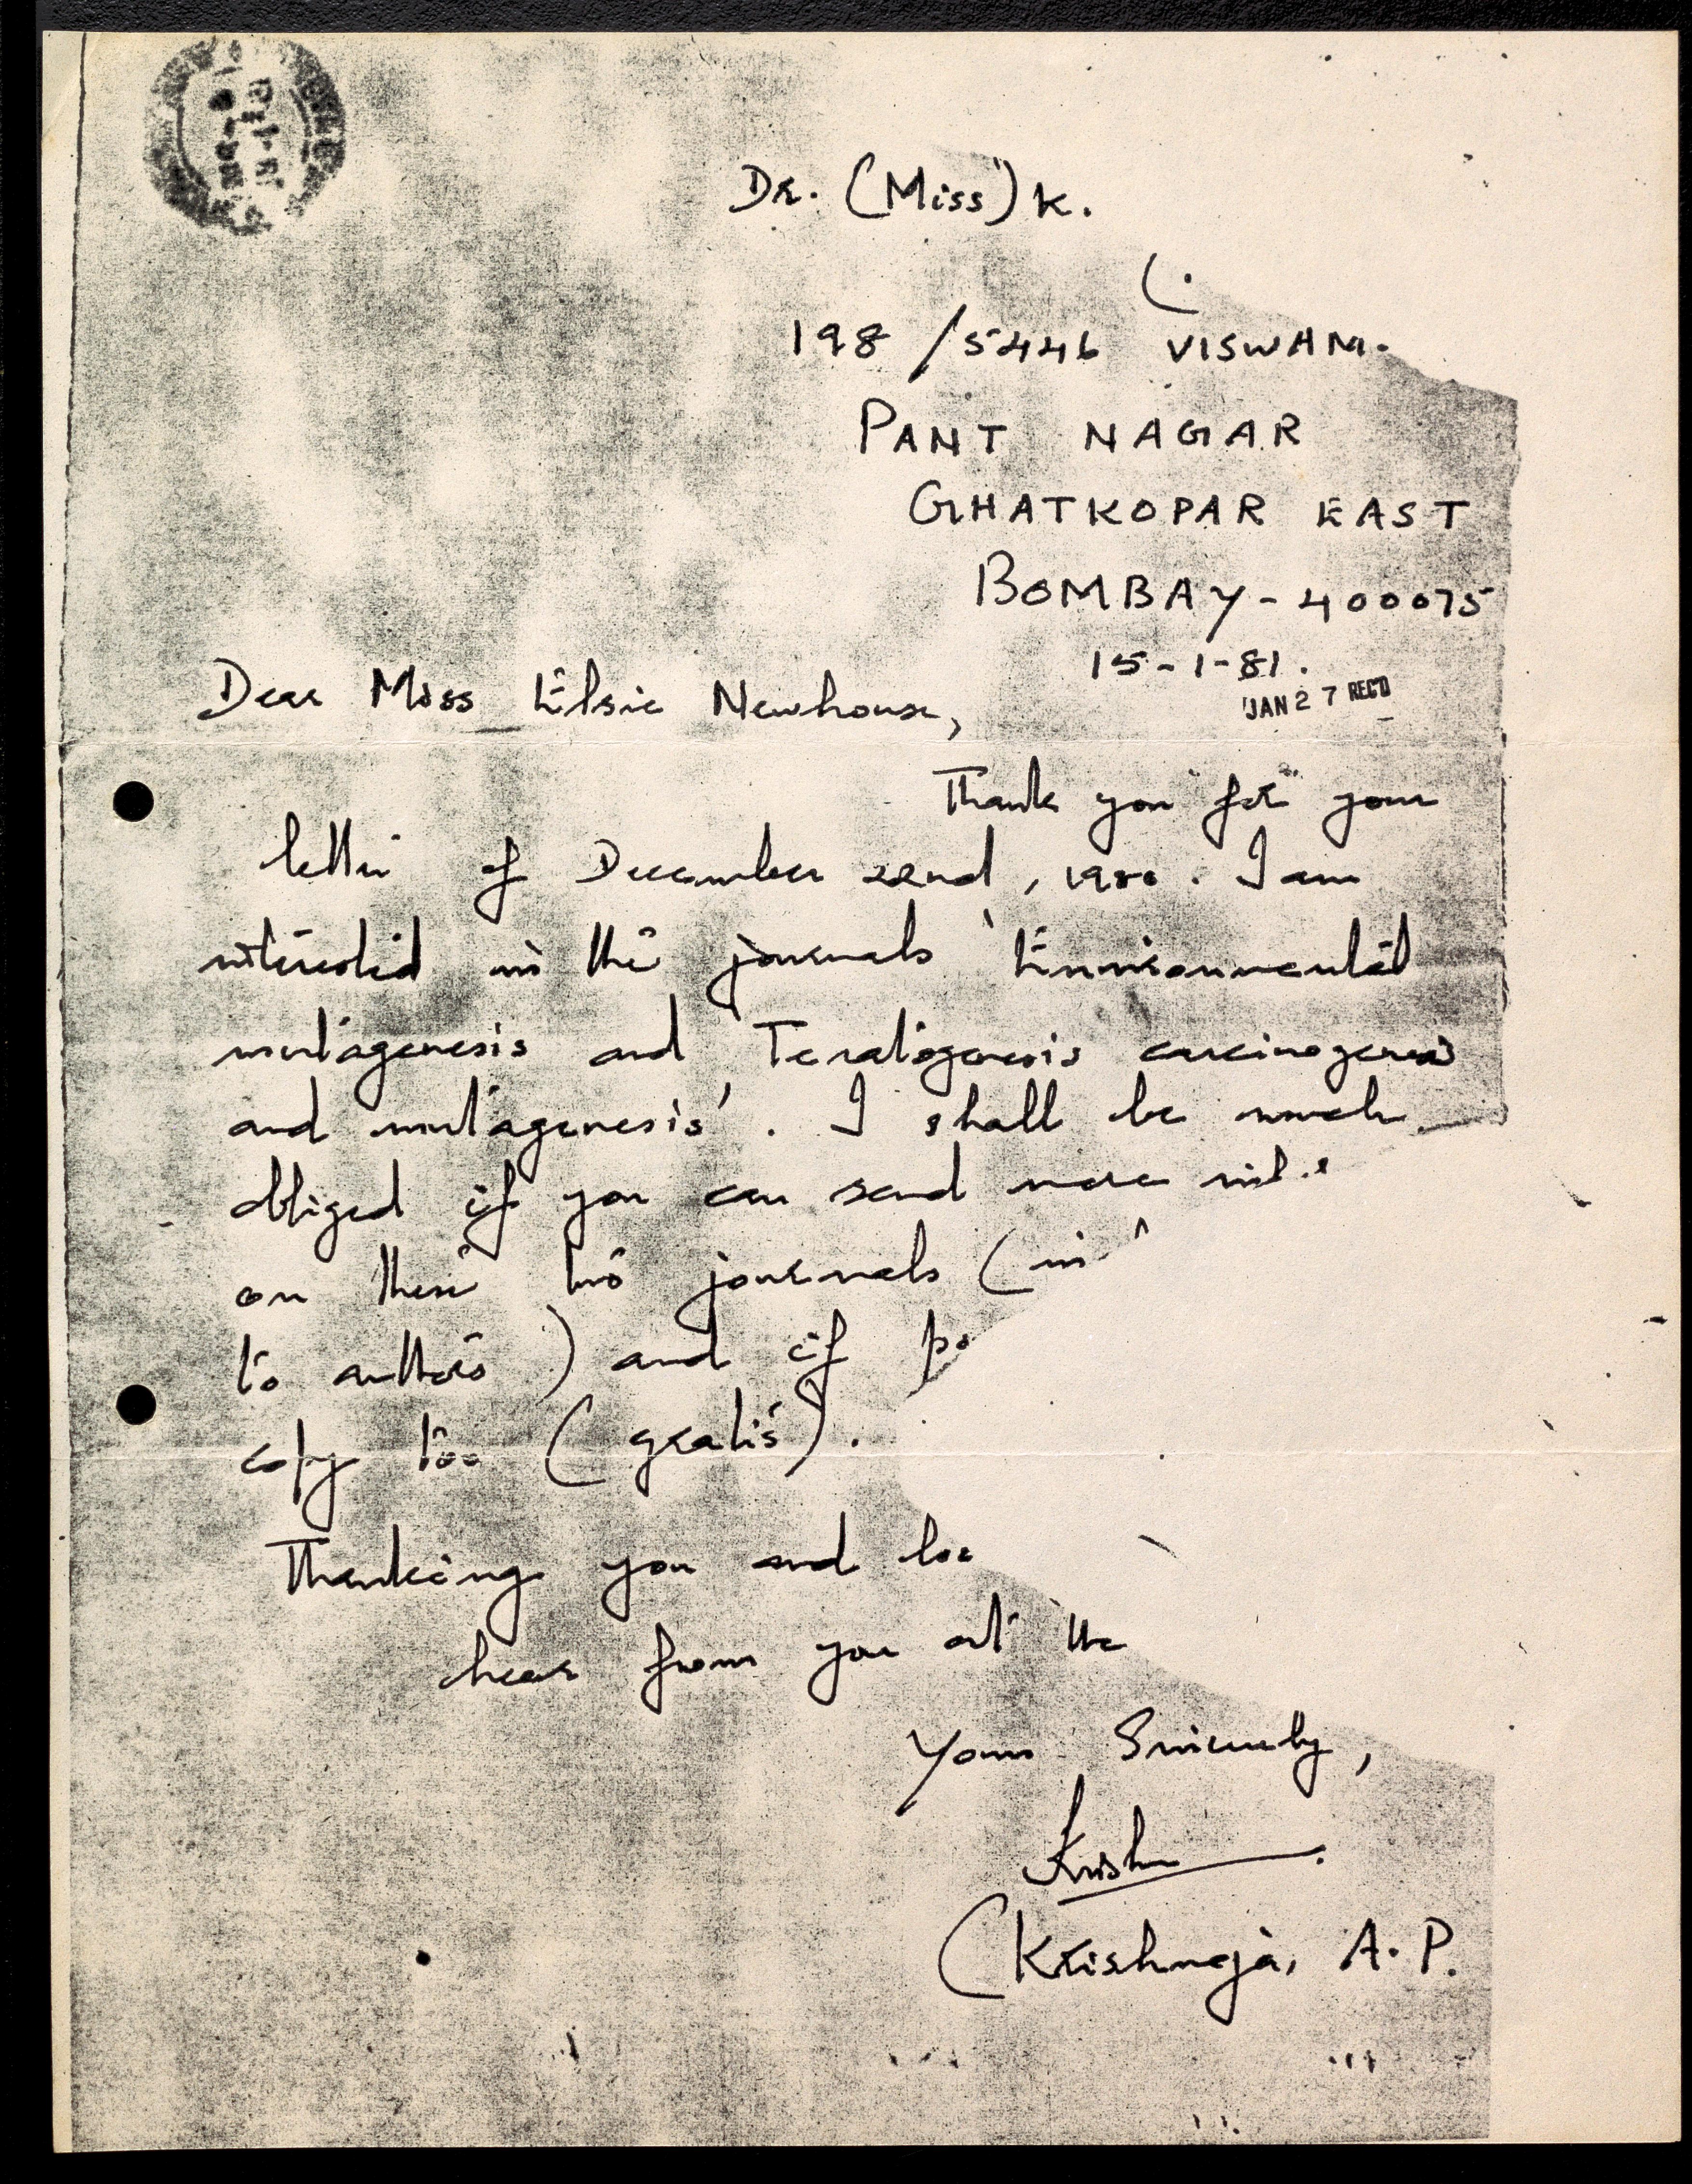 Dr. (Miss) K.
(.
198 / 5446 VISWAM.
PANT NAGAR
GHATKOPAR EAST
BOMBAY - 400075
15-1-81.
JAN 27 REC'D
Dear Miss Elsie Newhouse,
Thank you for your
letter of December 22nd, 1980. I am
interested in the journals 'Environmental
mutagenesis and 'Teratogenesis carcinogenesis
and mutagenesis'. I shall be much
obliged if you can send more
on these two journals (in
to authors) and if po
copy too (gratis).
Thanking you and loo
hear from you at the
Yours Sincerely,
Krishn
(Krishnaja, A.P.